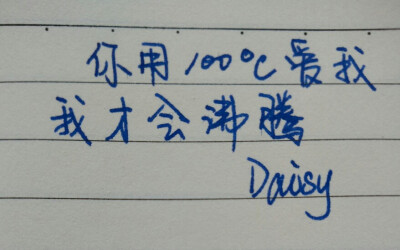 你用100℃爱我
我才会沸腾
Daisy